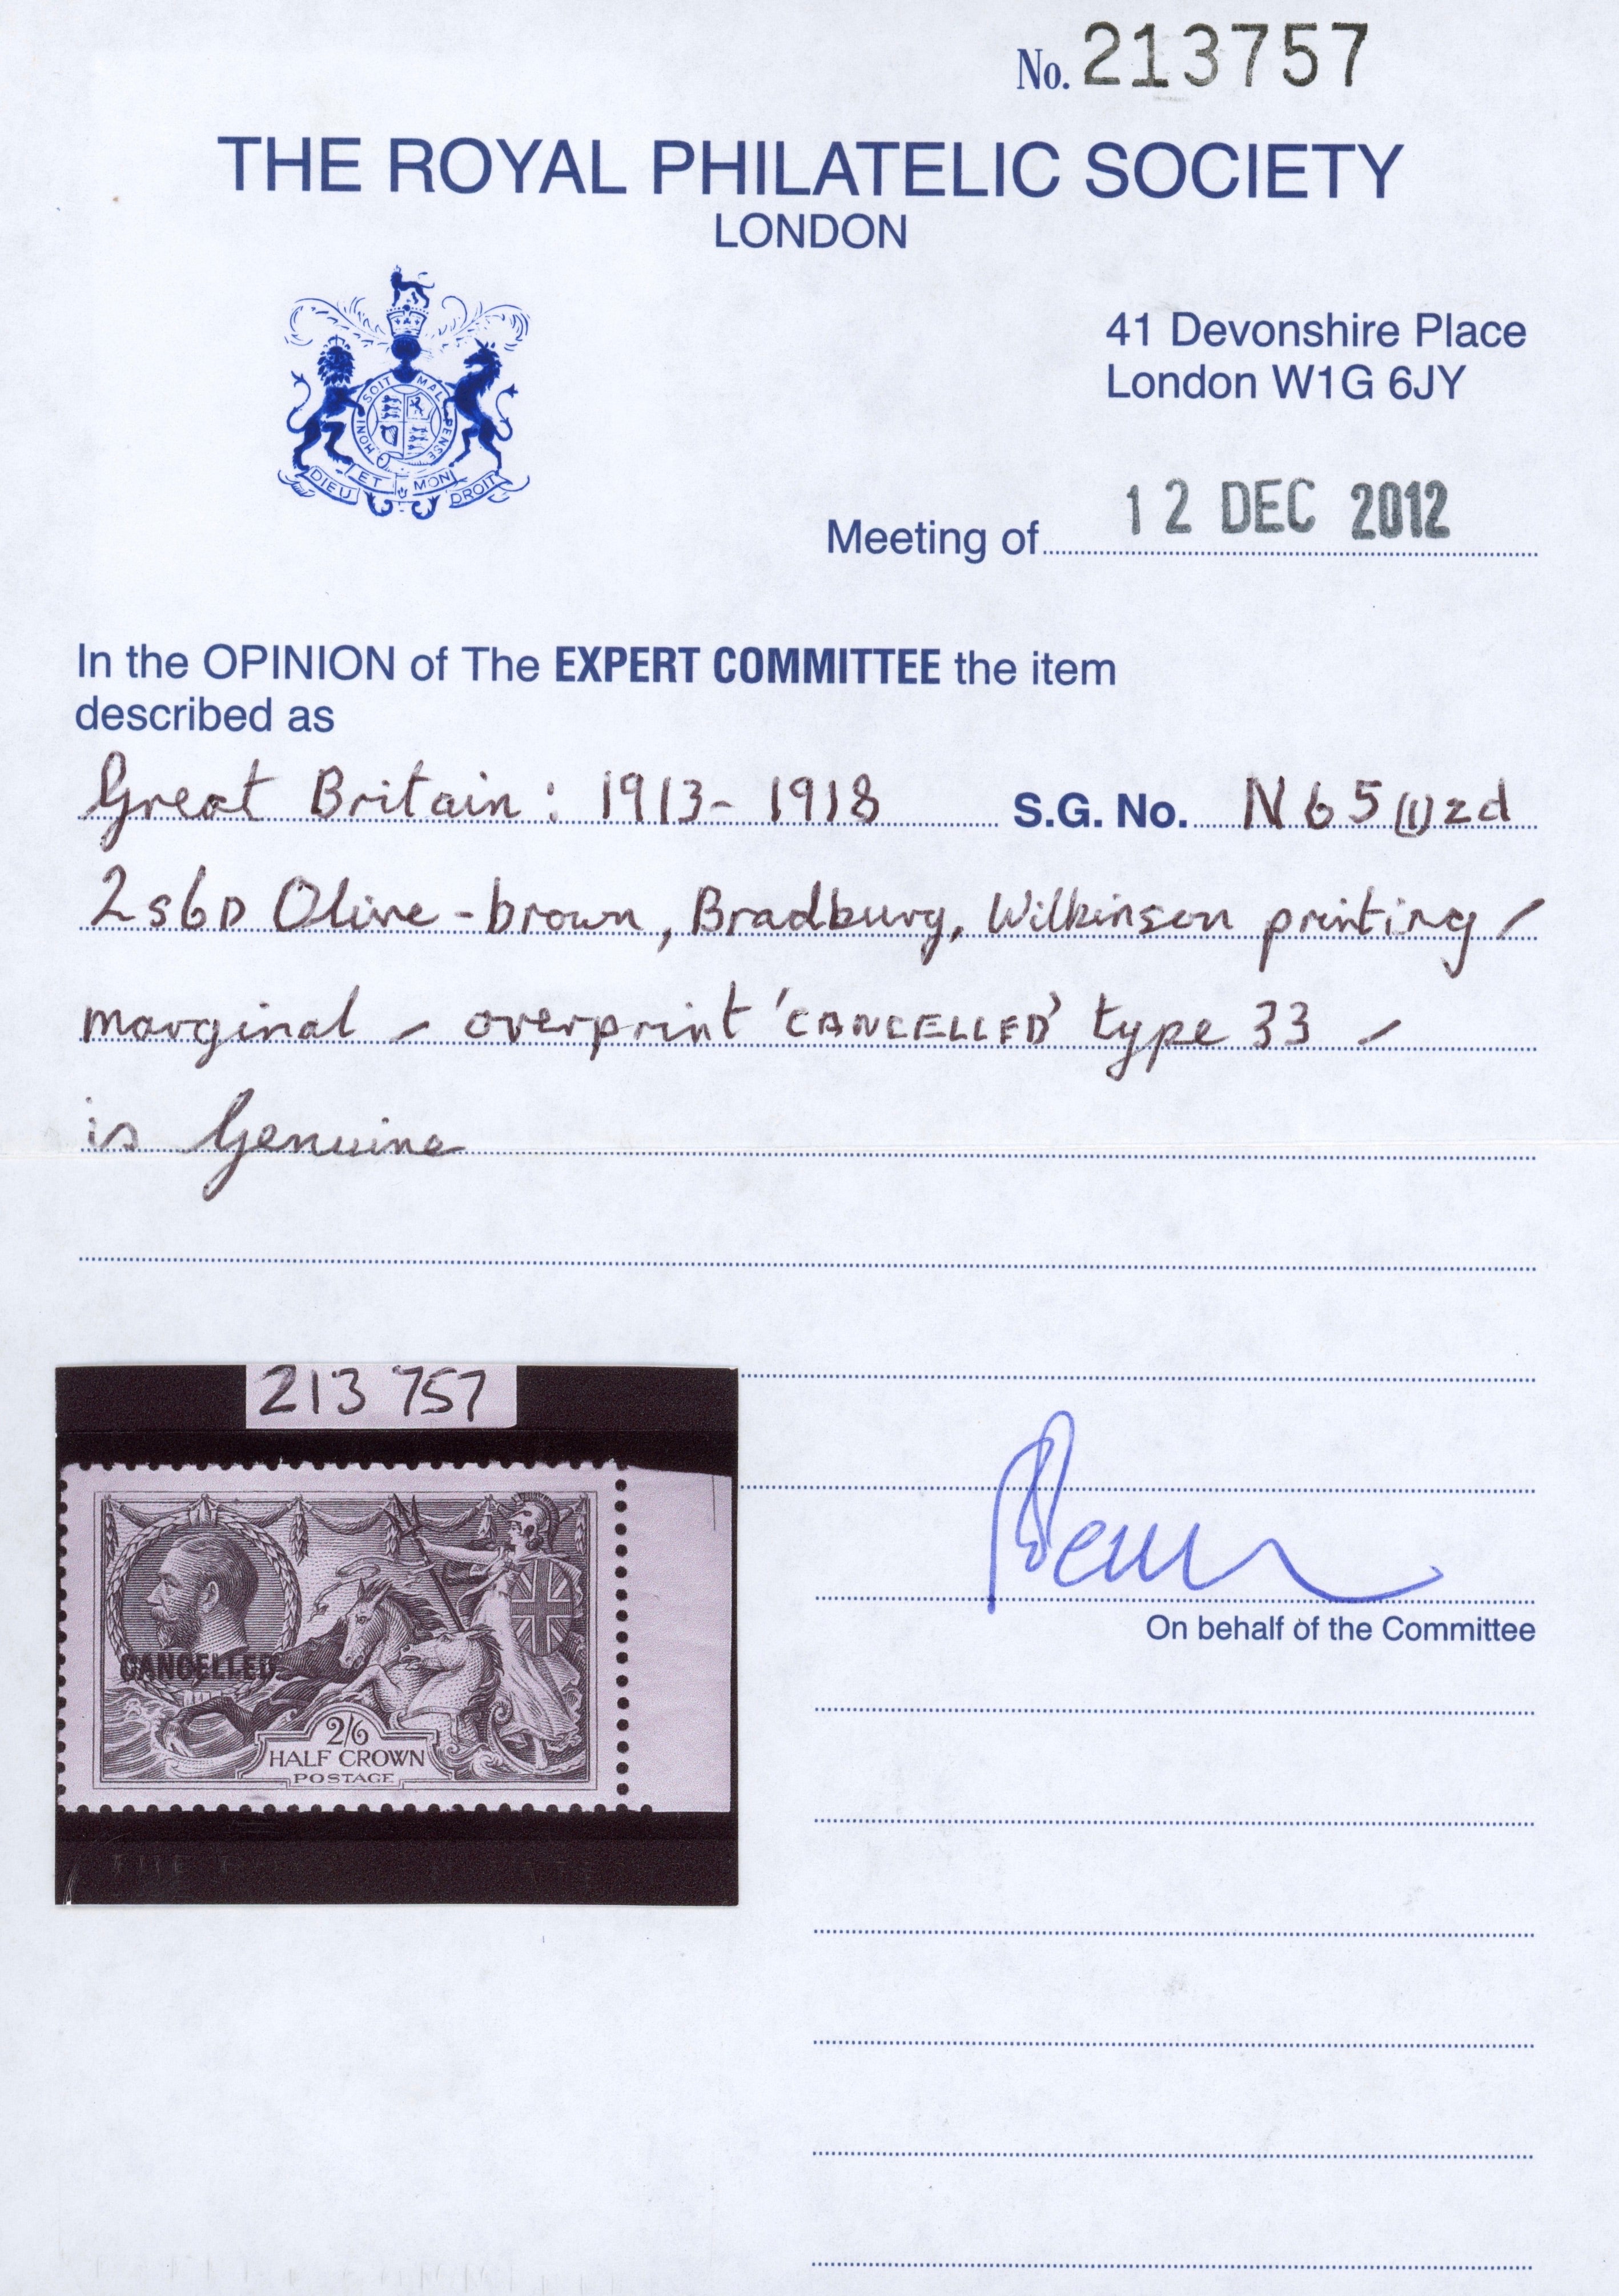 No. 213757
THE ROYAL PHILATELIC SOCIETY
LONDON
HONI SOIT MAL PENSE
DIEU ET MON DROIT
41 Devonshire Place
London W1G 6JY
Meeting of 12 DEC 2012
In the OPINION of The EXPERT COMMITTEE the item
described as
Great Britain: 1913-1918 S.G. No. N65(1)zd
2s6D Olive-brown, Bradbury, Wilkinson printing -
marginal - overprint 'CANCELLED' type 33 -
is Genuine
213 757
CANCELLED
2/6
HALF CROWN
POSTAGE
On behalf of the Committee